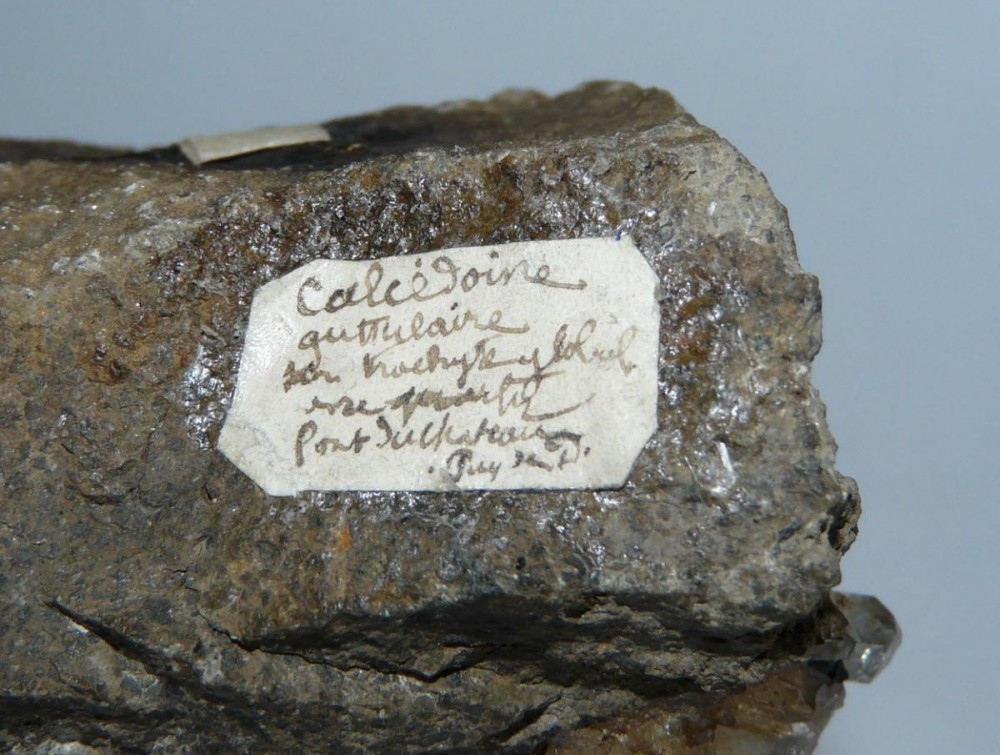 Calcédoine
guttulaire
sur trachyte globul
Pont du Chateau
Puy de D.